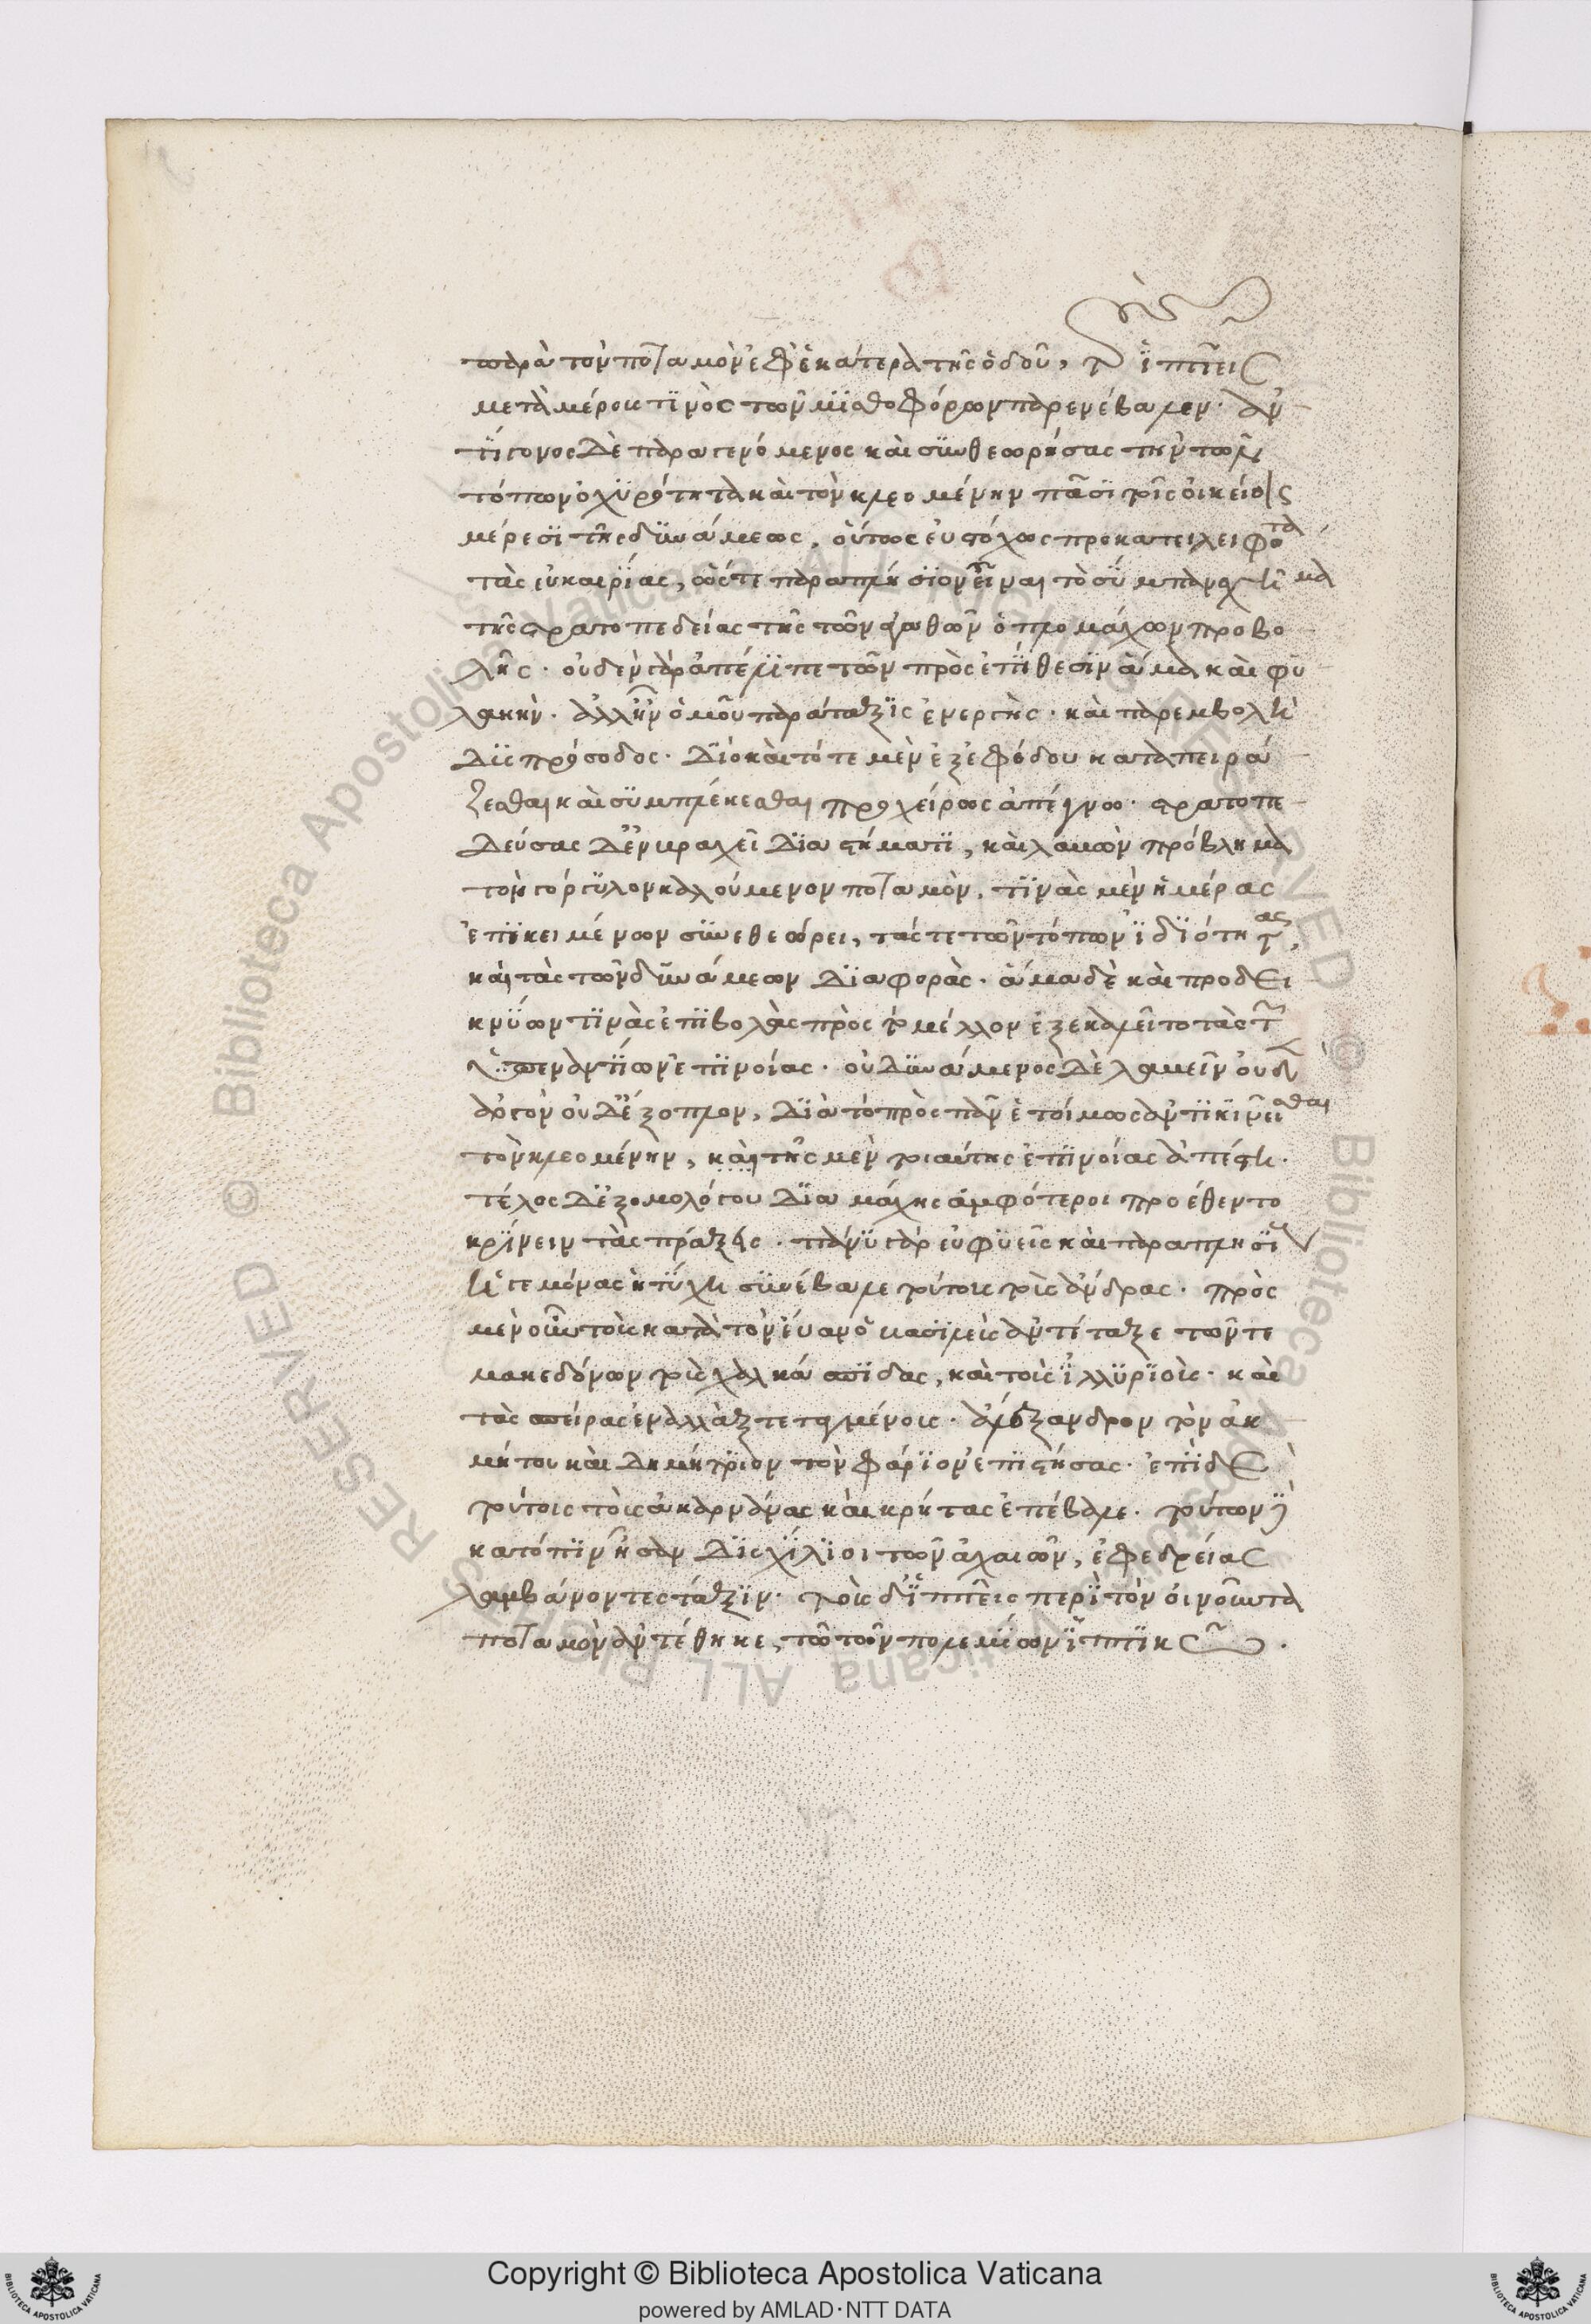 παρὰ τὸν ποταμὸν ἐφ' ἑκάτερα τῆς ὁδοῦ, τοὺς ἱππεῖς
μετὰ μέρους τινὸς τῶν μισθοφόρων παρενέβαλεν. ἀν
τίγονος δὲ παραγενόμενος καὶ συνθεωρήσας τὴν τῶν
τόπων ὀχυρότητα καὶ τὸν κλεομένην πᾶσι τοῖς οἰκείοις
μέρεσι τῆς δυνάμεως, οὕτως εὐστόχως προκατειληφότα
τὰς εὐκαιρίας, ὥστε παραπλήσιον εἶναι τὸ σύμπαν σχῆμα
τῆς στρατοπεδείας τῆς τῶν ἀγαθῶν ὁπλομάχων προβο
λῆς. οὐδὲν γὰρ ἀπέλιπε τῶν πρὸς ἐπίθεσιν ἅμα καὶ φυ
λακήν. ἀλλ' ἦν ὁμοῦ παράταξις ἐνεργὴς. καὶ παρεμβολὴ
δυσπρόσοδος. διὸ καὶ τότε μὲν ἐξ ἐφόδου καταπειρά
ζεσθαι καὶ συμπλέκεσθαι προχείρως ἀπέγνω. στρατοπε
δεύσας δ' ἐν βραχεῖ διαστήματι, καὶ λαβὼν πρόβλημα
τὸν γόργυλον καλούμενον ποταμὸν, τινὰς μὲν ἡμέρας
ἐπικειμένων συνεθεώρει, τάς τε τῶν τόπων ἰδιότητας,
καὶ τὰς τῶν δυνάμεων διαφορὰς. ἅμα δὲ καὶ προδει
κνύων τινὰς ἐπιβολὰς πρὸς τὸ μέλλον ἐξεκαλεῖτο τὰς τῶν
ὑπεναντίων ἐπινοίας. οὐ δυνάμενος δὲ λαβεῖν οὐδὲν
ἀργὸν οὐδ' ἔξοπλον, διὰ τὸ πρὸς πᾶν ἑτοίμως ἀντικινεῖσθαι
τὸν κλεομένην, καὶ τῆς μὲν τοιαύτης ἐπινοίας ἀπέστη.
τέλος δ' ἐξομολόγου διὰ μάχης ἀμφότεροι προέθεντο
κρίνειν τὰς πράξεις. πάνυ γὰρ εὐφυεῖς καὶ παραπλησίους
ἡγεμόνας ἡ τύχη συνέβαλε τούτους τοὺς ἄνδρας. πρὸς
μὲν οὖν τοὺς κατὰ τὸν εὔαν ὁ βασιλεὺς ἀντέταξε τῶν τε
μακεδόνων τοὺς χαλκάσπιδας, καὶ τοὺς ἰλλυριοὺς. κατὰ
τὰς σπείρας ἐναλλὰξ τεταγμένοις. ἀλέξανδρον τὸν ἀκ
μήτου καὶ δημήτριον τὸν φάριον ἐπιστήσας. ἐπὶ δὲ
τούτοις τοὺς ἀκαρνάνας καὶ κρῆτας ἐπέβαλε. τούτων δὲ
κατόπιν ἦσαν δισχίλιοι τῶν ἀχαιῶν, ἐφεδρείας
λαμβάνοντες τάξιν. τοὺς δ' ἱππεῖς περὶ τὸν οἰνοῦντα
ποταμὸν ἀντέθηκε, τῷ τῶν πολεμίων ἱππικῷ.
Copyright © Biblioteca Apostolica Vaticana
powered by AMLAD·NTT DATA